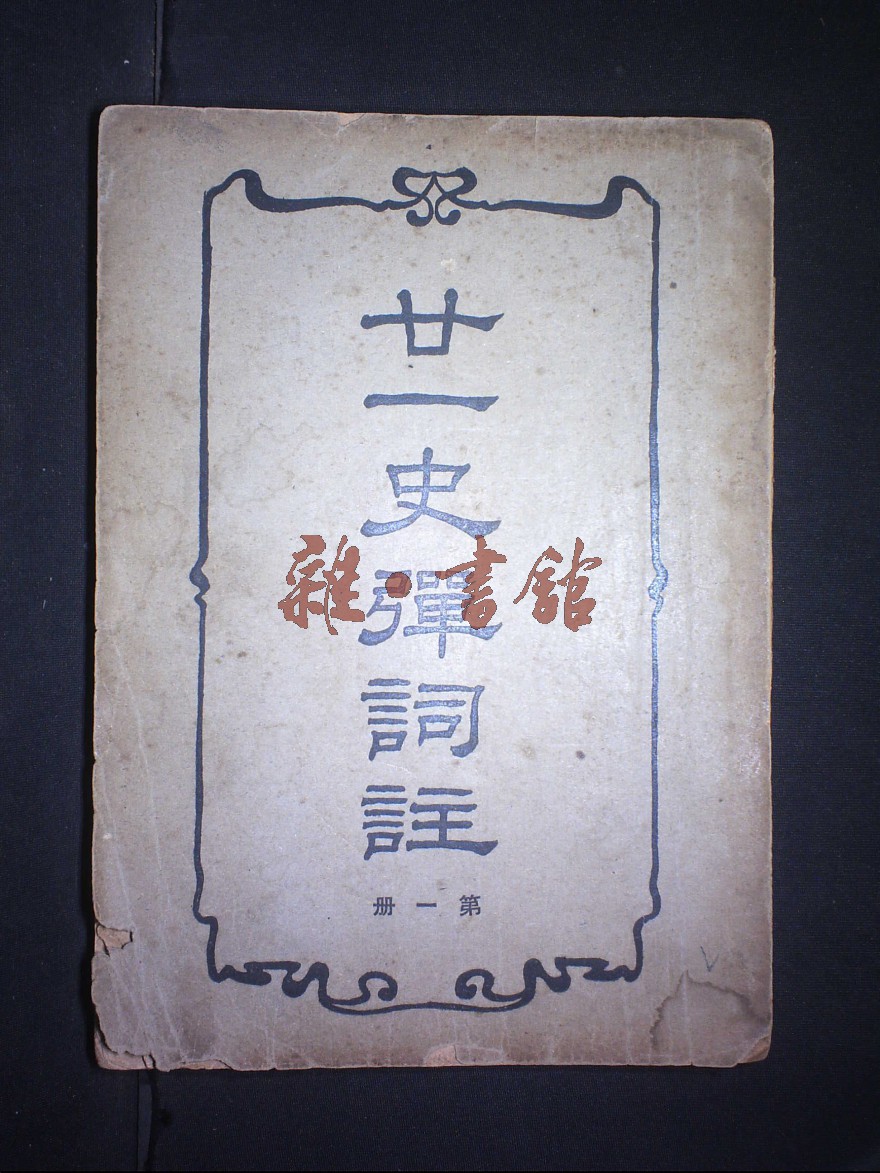 廿一史彈詞註
第一册
雜·書館